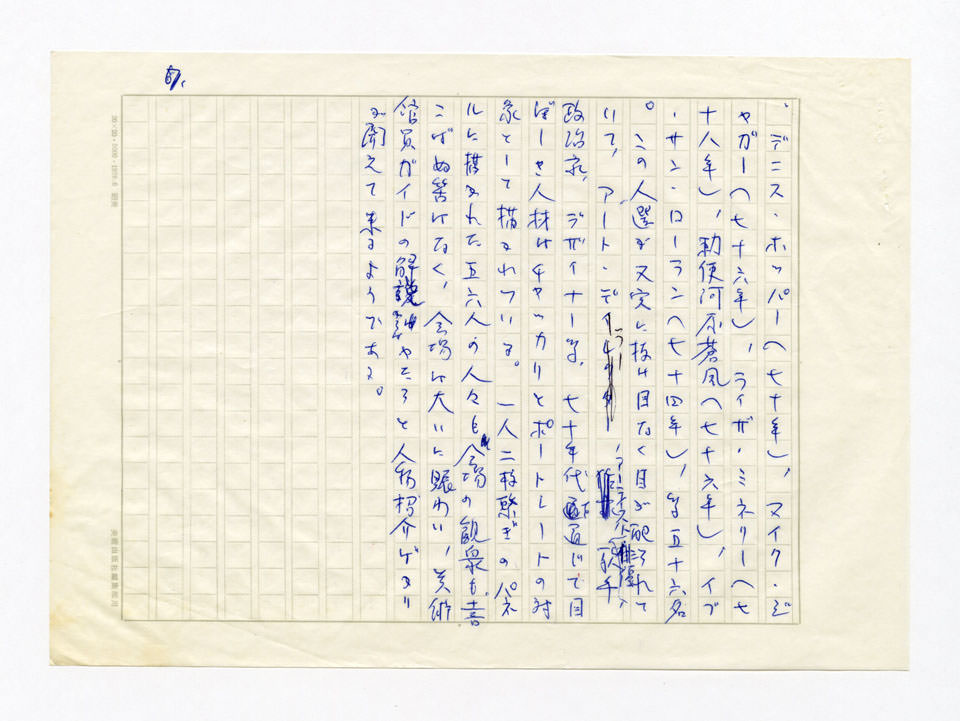 、デニス・ホッパー（七十年）、マイク・ジ
ャガー（七十六年）、ライザ・ミネリー（七
十八年）、勅使河原蒼風（七十六年）、イブ
・サン・ローラン（七十四年）、等五十六名
。この人選が又実に抜け目なく目が配られて
いて、アート・ディーラー、俳優、歌手
政治家、デザイナー等、七十年代を通じて目
ぼしき人材はチャッカリとポートレートの対
象として描かれている。一人二枚繋ぎのパネ
ルに描かれた五六人の人々も会場の観衆も、喜
こばぬ筈はなく、会場は大いに賑わい、美術
館員ガイドの解説はやたらと人物紹介ゲタリ
が聞えて来るようである。
20×20